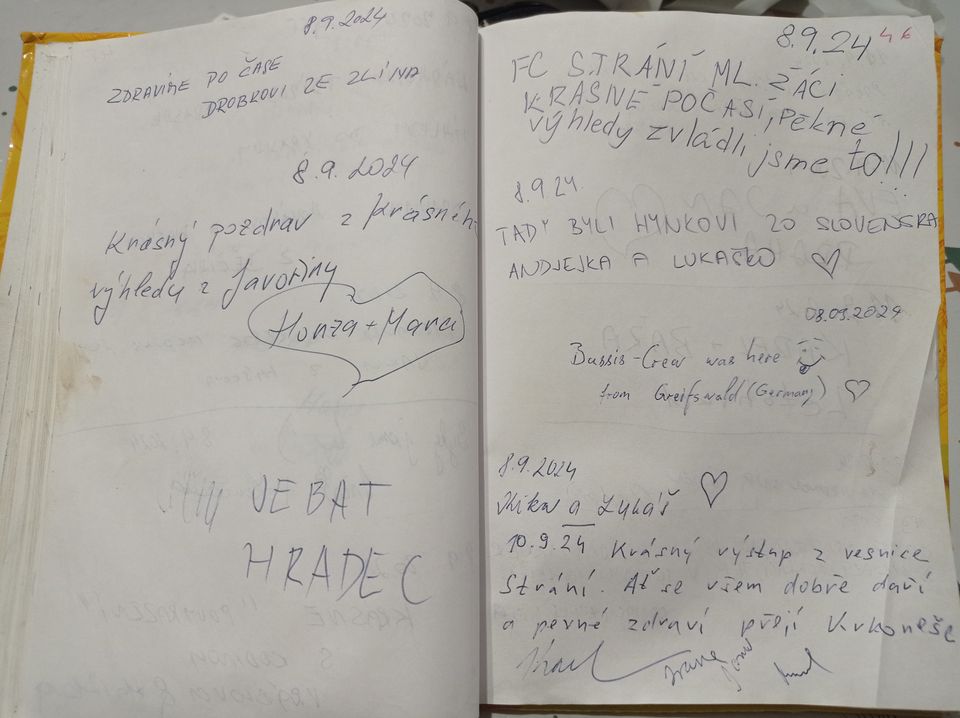 8.9.2024
ZDRAVÍME PO ČASE
DROBKOVI ZE ZLÍNA
8.9.2024
Krásný pozdrav z krásného
výhledu z Javořiny
Honza + Marci
JEBAT
HRADEC
8.9.24 46
FC STRÁNÍ ML. ŽÁCI
KRÁSNÉ POČASÍ, PĚKNÉ
výhledy zvládli jsme to!!!
8.9.24.
TADY BYLI HYNKOVI ZO SLOVENSKA
ANDJEJKA A LUKAŠKO
08.09.2024
Bussis-Crew was here
from Greifswald (Germany)
8.9.2024
Nika a Lukáš
10.9.24 Krásný výstup z vesnice
Strání. Ať se všem dobře daří
a pevné zdraví přejí Krkonoše